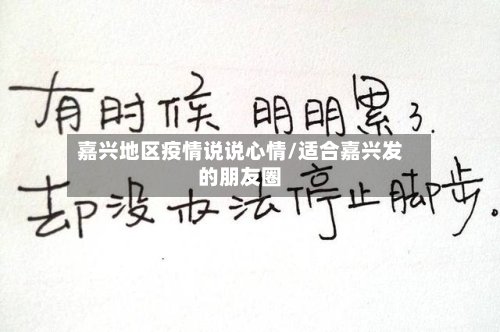 有时候 明明累了.
嘉兴地区疫情说说心情/适合嘉兴发
的朋友圈
却没办法停止脚步。